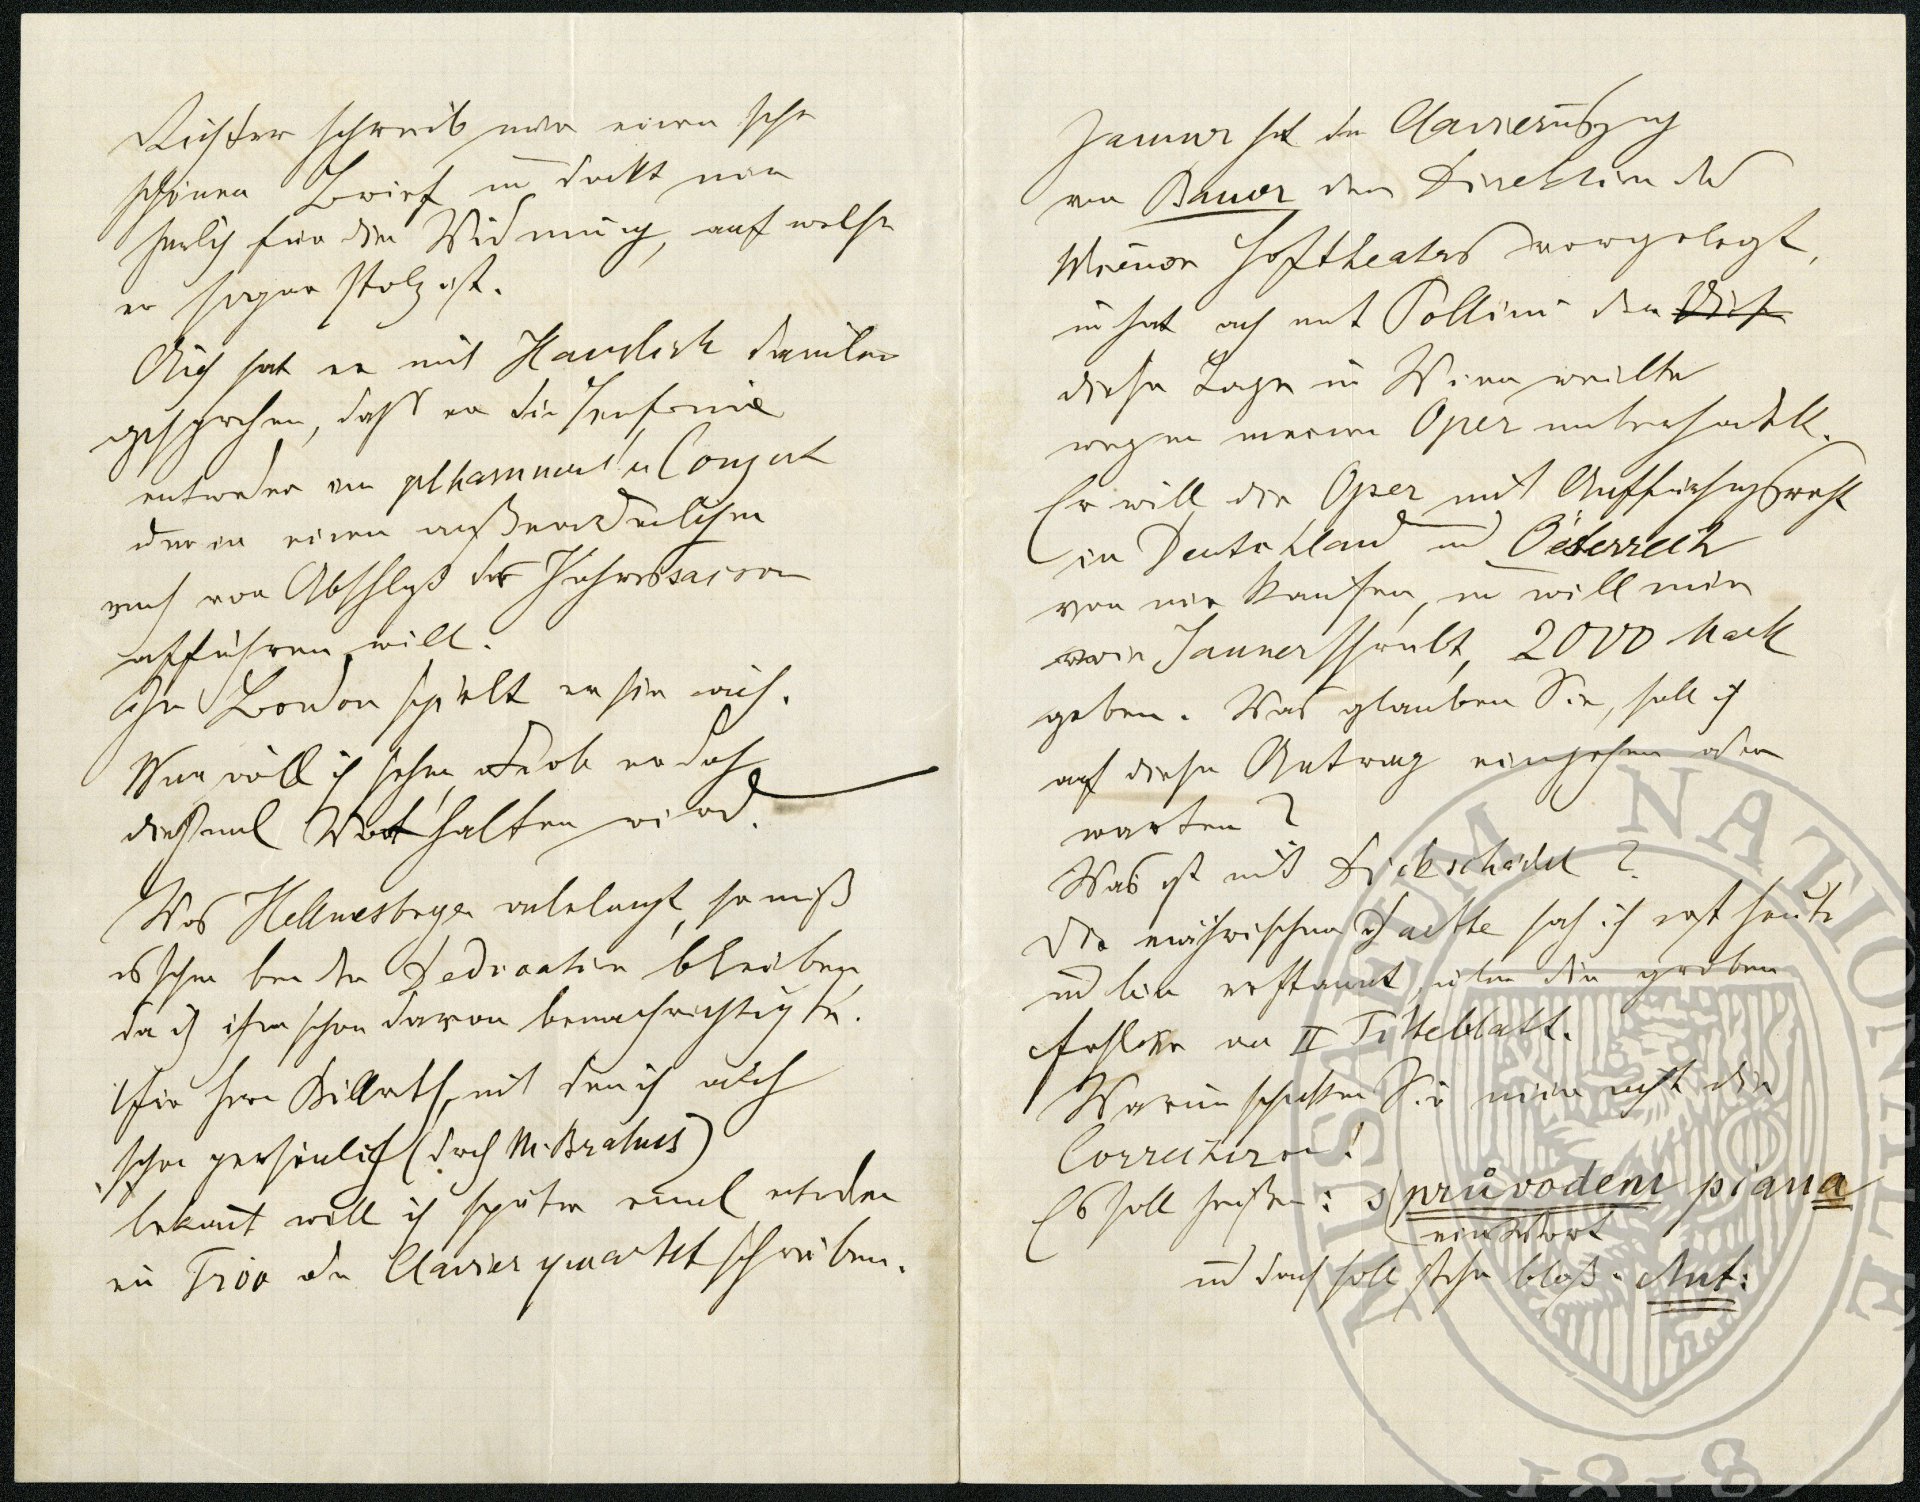 Richter schreib mir einen sehr
schönen Brief u dankt mir
herzlich für die Widmung, auf welche
er sogar stolz ist.
Auch hat er mit Hanslick darüber
gesprochen, dass er die Sinfonie
entweder im philharmonischen Conzert
oder in einem außerordentlichen
noch vor Abschluß der Jahressaison
aufführen will.
In London spielt er sie auch.
Nun will ich sehen, ob er doch
dießmal Wort halten wird.
Was Hellmesberger anbelangt, so muß
es schon bei der Dedication bleiben,
da ich ihm schon davon benachrichtigte.
Für Herrn Billroth, mit dem ich auch
schon persönlich (durch M. Brahms)
bekannt will ich später einmal entweder
ein Trio oder Clavierquartett schreiben.
Jauner hat den Clavierauszug
von Bauer dem Direktion des
Wiener Hoftheaters vorgelegt,
u hat auch mit Pollini der
diese Tage in Wien weilte
wegen meiner Oper unterhandelt.
Er will die Oper mit Aufführungsrecht
in Deutschland und Oesterreich
von mir kaufen, u will mir
wie Jauner schreibt, 2000 Mark
geben. Was glauben Sie, soll ich
auf diesen Antrag eingehen oder
warten?
Was ist mit Dickschädel?
Die mährischen Duette sah ich erst heute
und bin erstaunt über die groben
Fehler am II Titteblatt.
Warum schicken Sie mir nicht die
Correcturen!
Es soll heißen: s průvodem piana
ein Wort
und doch soll stehen bloß: Ant:
MUSEUM NATIONALE
1818